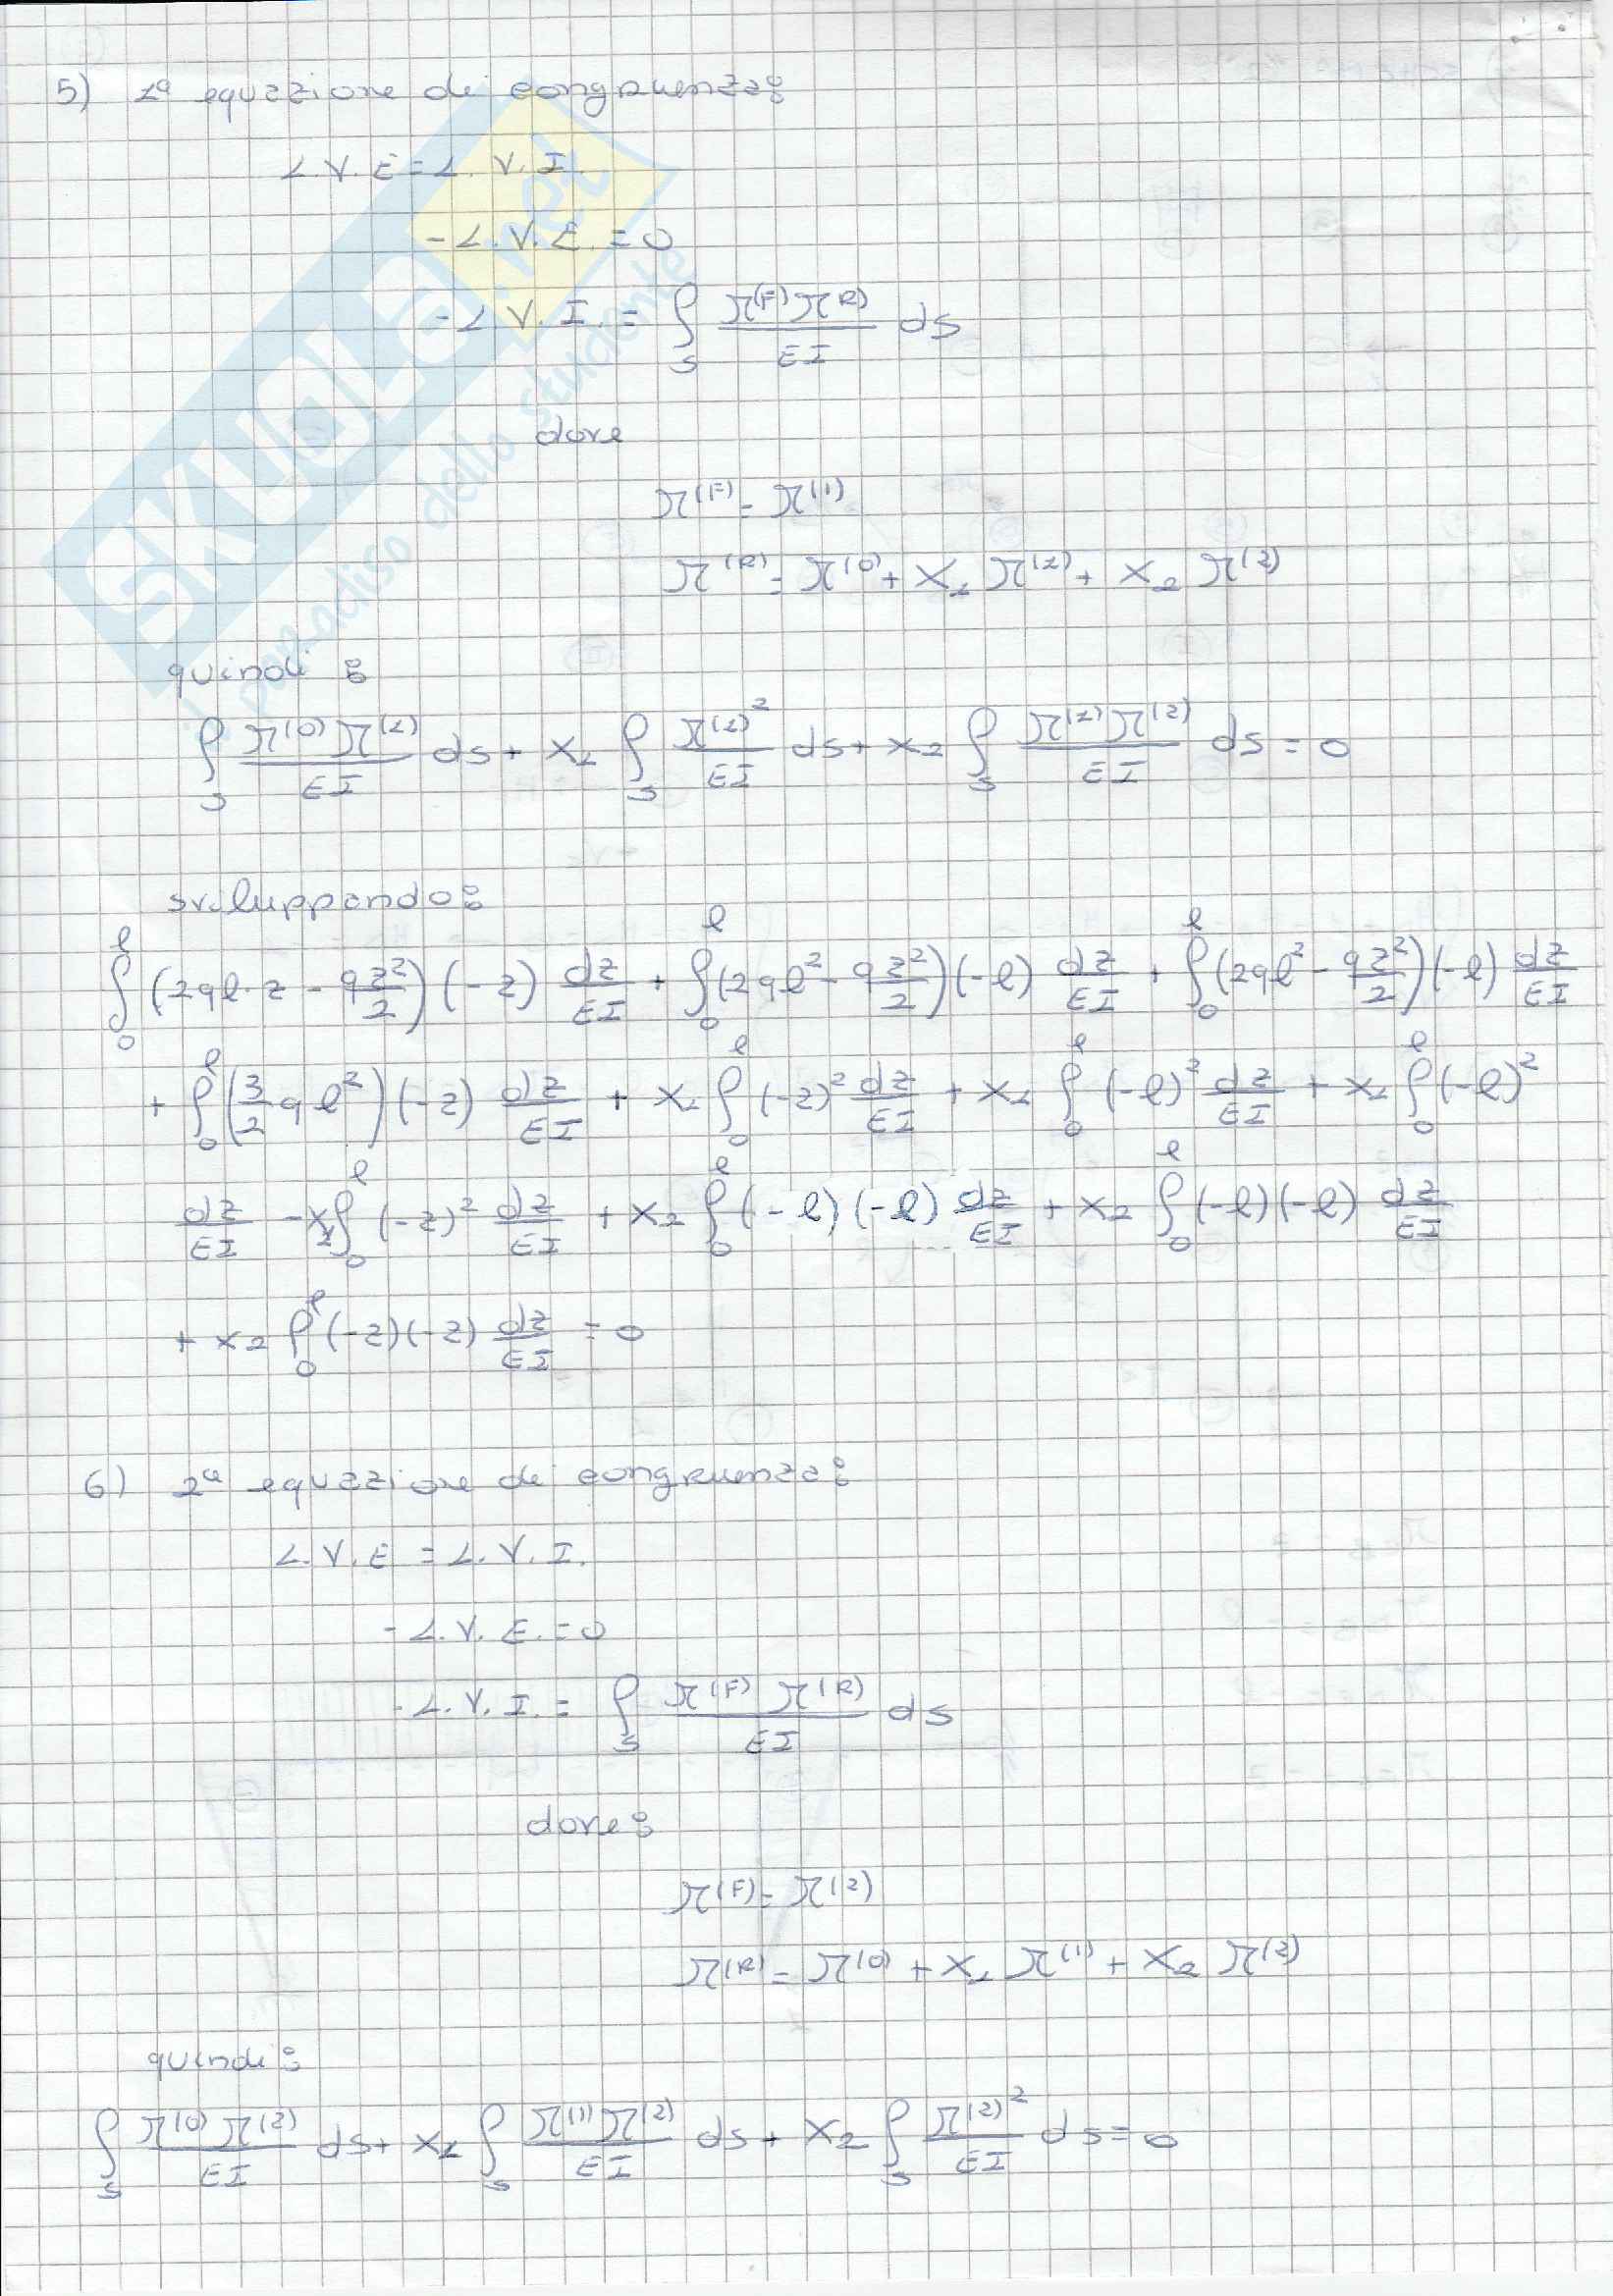 5) 1ª equazione di congruenza:
L.V.E = L.V.I.
- L.V.E. = 0
- L.V.I. = ∫_S M^(F) M^(R) / EI ds
dove
M^(F) = M^(1)
M^(R) = M^(0) + X₁ M^(1) + X₂ M^(2)
quindi:
∫_S M^(0) M^(1) / EI ds + X₁ ∫_S M^(1)² / EI ds + X₂ ∫_S M^(1) M^(2) / EI ds = 0
sviluppando:
∫₀^l (2ql·z - qz²/2) (-z) dz/EI + ∫₀^l (2ql² - qz²/2) (-l) dz/EI + ∫₀^l (2ql² - qz²/2) (-l) dz/EI
+ ∫₀^l (3/2 ql²) (-z) dz/EI + X₁ ∫₀^l (-z)² dz/EI + X₁ ∫₀^l (-l)² dz/EI + X₁ ∫₀^l (-l)²
dz/EI - X₁ ∫₀^l (-z)² dz/EI + X₂ ∫₀^l (-l) (-l) dz/EI + X₂ ∫₀^l (-l) (-l) dz/EI
+ X₂ ∫₀^l (-z) (-z) dz/EI = 0
6) 2ª equazione di congruenza:
L.V.E = L.V.I.
- L.V.E. = 0
- L.V.I. = ∫_S M^(F) M^(R) / EI ds
dove:
M^(F) = M^(2)
M^(R) = M^(0) + X₁ M^(1) + X₂ M^(2)
quindi:
∫_S M^(0) M^(2) / EI ds + X₁ ∫_S M^(1) M^(2) / EI ds + X₂ ∫_S M^(2)² / EI ds = 0
SKUOLA.net
paradiso dello studente